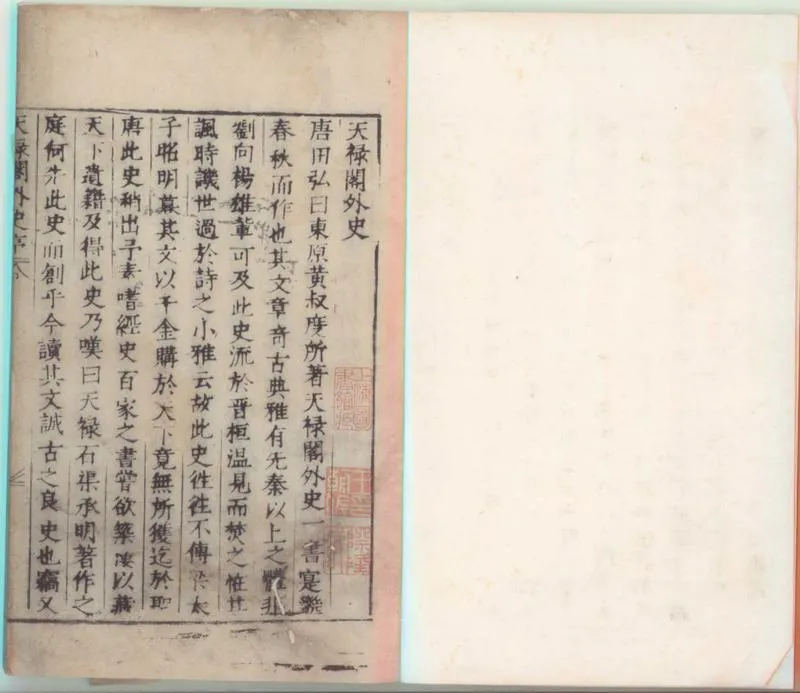 天禄閣外史
唐田弘曰東原黄叔度所著天禄閣外史一書寔繼
春秋而作也其文章奇古典雅有先秦以上之體非
劉向楊雄軰可及此史流於晋桓温見而焚之惟其
諷時譏世過於詩之小雅云故此史徃徃不傳梁太
子昭明慕其文以千金購於天下竟無所獲迄於聖
唐此史稍出予素嗜經史百家之書嘗欲築凄以藏
天下遺籍及得此史乃嘆曰天禄石渠承明著作之
庭何先此史而創乎今讀其文誠古之良史也竊又
天禄閣外史序